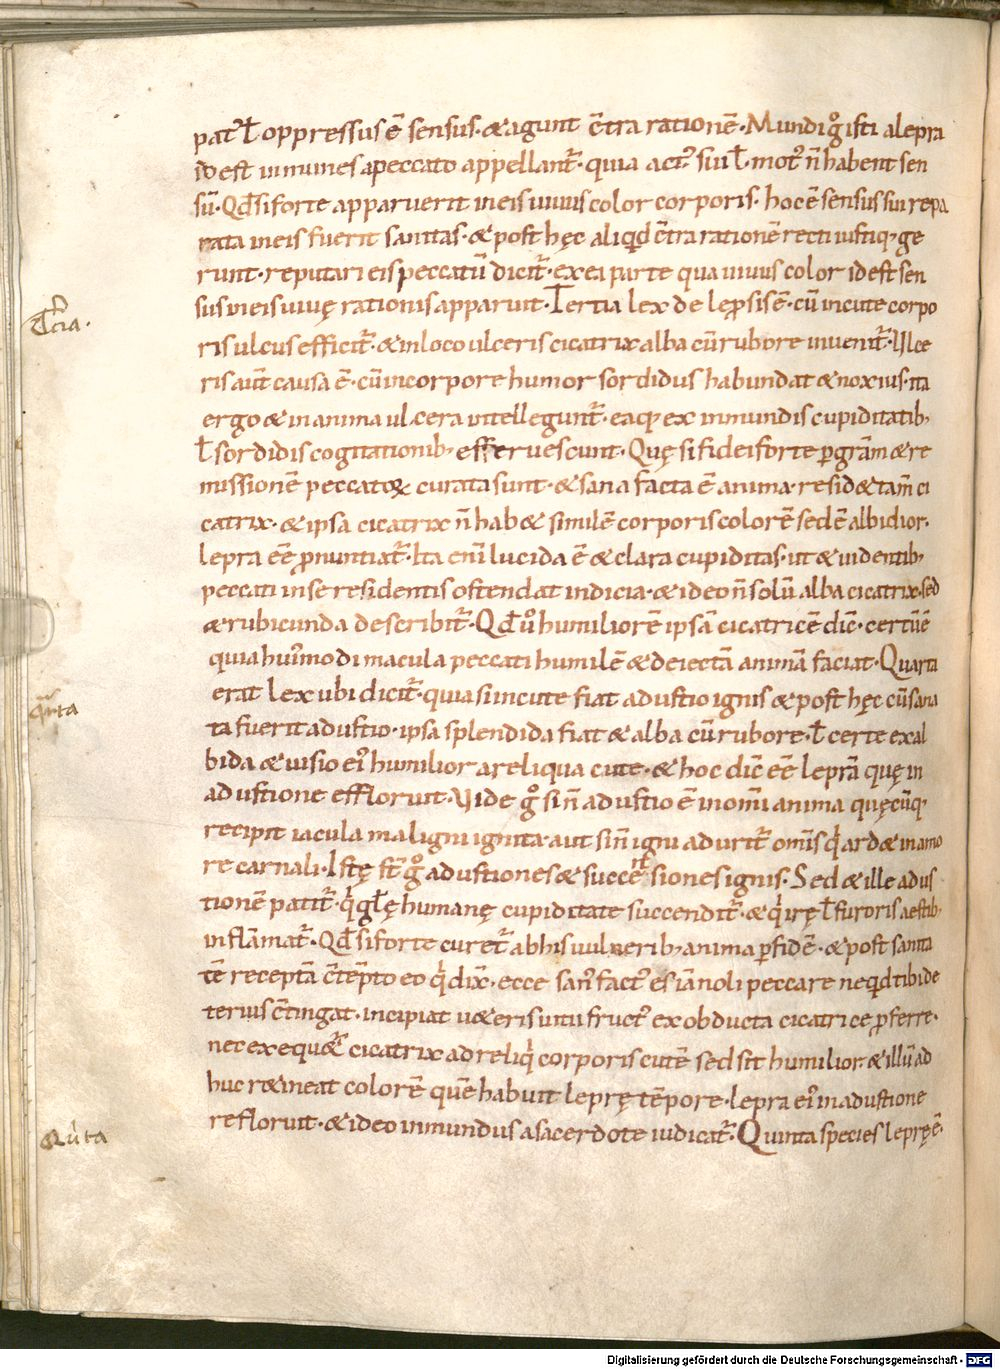 patr ł oppressus ē sensus· & agunt c̄tra rationē· Mundi g̊ isti a lepra
id est inmunes a peccato appellant̄r· quia act᷒ sui ł mot᷒ n̄ habent sen
sū· Qđ si forte apparuerit in eis uiuus color corporis· hoc ē sensus sui repa
rata in eis fuerit sanitas· & post hęc aliqid c̄tra rationē recti iustiq· ge
runt· reputari eis peccatū dicit̄r· ex ea parte qua uiuus color id est sen
sus in eis uiuę rationis apparuit· Tertia lex de lepr̄ sis ē· cū in cute corpo
Tc̄ia·
ris ulcus efficit̄r· & in loco ulceris cicatrix alba cū rubore inuenit̄r· Ulce
ris aūt causa ē· cū in corpore humor sordidus habundat & noxius· ita
ergo & in anima ulcera intellegunt̄r· eaq; ex inmundis cupiditatib;
ł sordidis cogitationib; efferuescunt· Quę si fidei forte p̱ grām & re
missionē peccatoꝝ curata sunt· & sana facta ē anima· resid& tam̄ ci
catrix· & ipsa cicatrix n̄ hab& similē corporis colorē sed ē albidior·
lepra eē p̄nuntiat̄r· Ita enī lucida ē & clara cupiditas· ut & uidentib;
peccati in se residentis ostendat indicia· & ideo n̄ solū alba cicatrix· sed
& rubicunda describit̄r· Qđ u̓o humiliorē ipsā cicatricē dic̄· certū ē
quia hui᷒modi macula peccati humilē & deiectā animā faciat· Quarta
erat lex ubi dicit̄r· quia si in cute fiat adustio ignis & post hęc cū sana
q̄rta
ta fuerit adustio· ipsa splendida fiat & alba cū rubore· ł certe exal
bida & uisio ei᷒ humilior a reliqua cute· & hoc dic̄ eē leprā quę in
adustione effloruit· Vide g̊ si n̄ adustio ē in om̄i anima quęcūq;
recipit iacula maligni ignita· aut si n̄ igni adurit̄r om̄is q̇ ard& in amo
re carnali· Istę st̄ g̊ adustiones & succensiones ignis· Sed & ille adus
tionē patit̄r· q̇ głę humanę cupiditate succendit̄r· & q̇ irę ł furoris aestib;
inflāmat̄r· Qđ si forte curet̄r ab his uulnerib; anima p̱ fidē· & post sanita
tē receptā c̄tēpto eo q̇ dix̄· ecce san᷒ fact᷒ es iā noli peccare ne qid tibi de
terius c̄tingat· incipiat ueteris uitii fruct᷒ ex obducta cicatrice p̄ferre·
nec exequet̄r cicatrix ad reliq̇ corporis cutē sed sit humilior· & illū ad
huc r&ineat colorē quē habuit leprę tēpore· lepra ei᷒ in adustione
refloruit· & ideo inmundus a sacerdote iudicat̄r· Quinta species leprę ē·
Quı̄ta
Digitalisierung gefördert durch die Deutsche Forschungsgemeinschaft - DFG